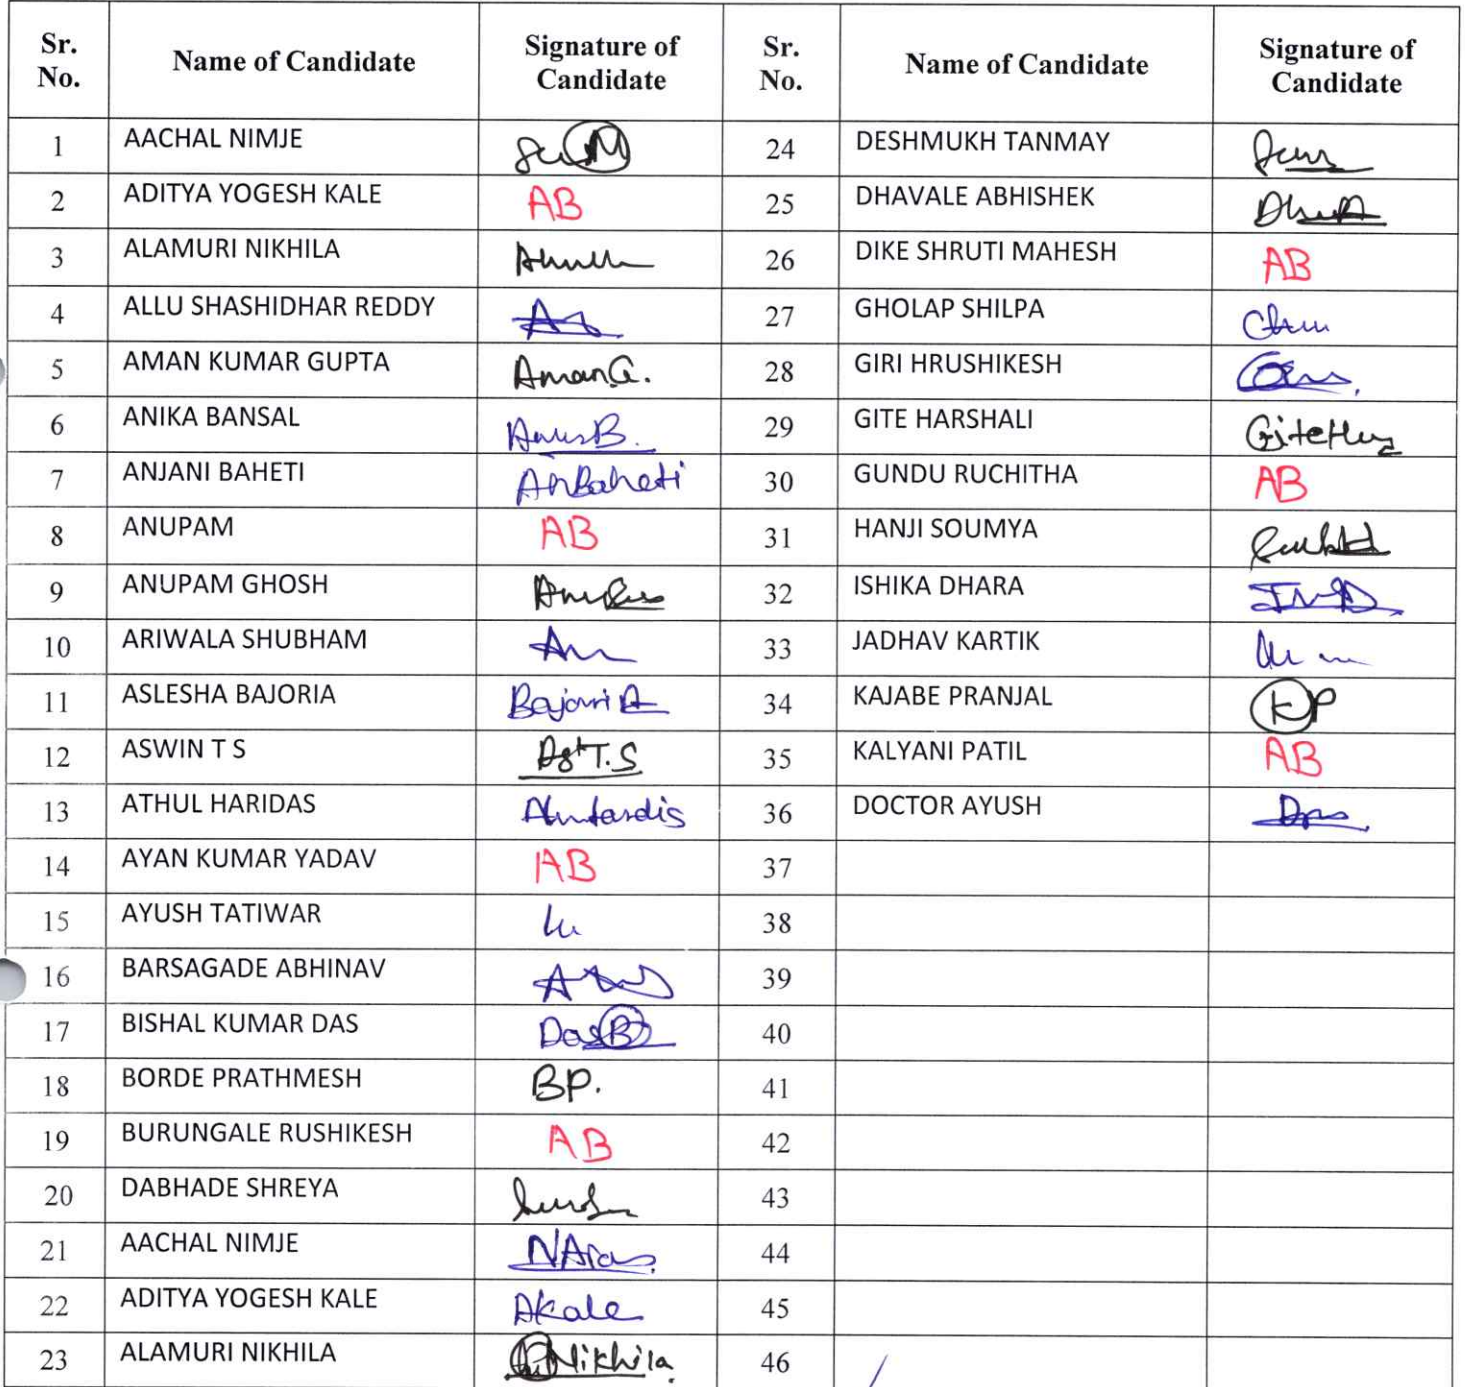 Sr. No. Name of Candidate Signature of Candidate Sr. No. Name of Candidate Signature of Candidate
1 AACHAL NIMJE 24 DESHMUKH TANMAY
2 ADITYA YOGESH KALE AB 25 DHAVALE ABHISHEK
3 ALAMURI NIKHILA 26 DIKE SHRUTI MAHESH AB
4 ALLU SHASHIDHAR REDDY 27 GHOLAP SHILPA
5 AMAN KUMAR GUPTA AmanG. 28 GIRI HRUSHIKESH
6 ANIKA BANSAL 29 GITE HARSHALI
7 ANJANI BAHETI AnBaheti 30 GUNDU RUCHITHA AB
8 ANUPAM AB 31 HANJI SOUMYA
9 ANUPAM GHOSH 32 ISHIKA DHARA
10 ARIWALA SHUBHAM 33 JADHAV KARTIK
11 ASLESHA BAJORIA 34 KAJABE PRANJAL KP
12 ASWIN T S 35 KALYANI PATIL AB
13 ATHUL HARIDAS 36 DOCTOR AYUSH
14 AYAN KUMAR YADAV AB 37
15 AYUSH TATIWAR 38
16 BARSAGADE ABHINAV 39
17 BISHAL KUMAR DAS DasB 40
18 BORDE PRATHMESH BP. 41
19 BURUNGALE RUSHIKESH AB 42
20 DABHADE SHREYA 43
21 AACHAL NIMJE 44
22 ADITYA YOGESH KALE AKale 45
23 ALAMURI NIKHILA Nikhila. 46